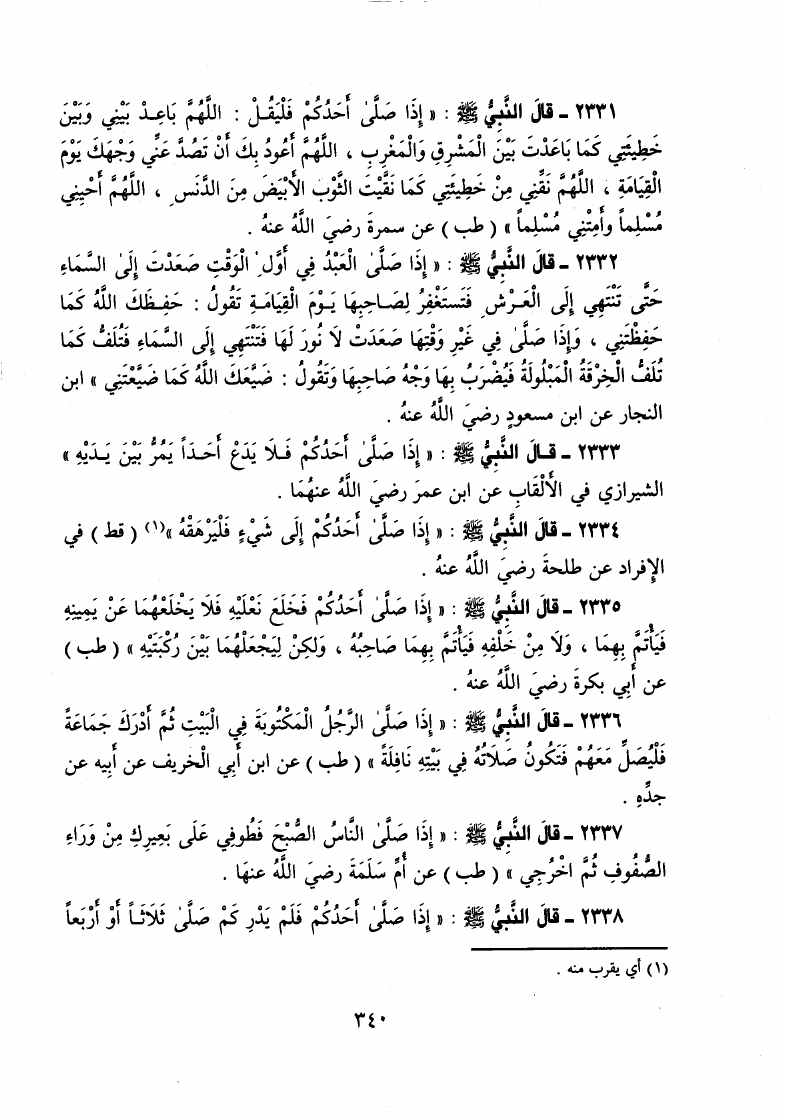 ٢٣٣١ ـ قالَ النَّبِيُّ ﷺ : « إِذَا صَلَّىٰ أَحَدُكُمْ فَلْيَقُلْ : اللَّهُمَّ بَاعِدْ بَيْنِي وَبَيْنَ
خَطِيئَتِي كَمَا بَاعَدْتَ بَيْنَ الْمَشْرِقِ وَالْمَغْرِبِ ، اللَّهُمَّ أَعُوذُ بِكَ أَنْ تَصُدَّ عَنِّي وَجْهَكَ يَوْمَ
الْقِيَامَةِ ، اللَّهُمَّ نَقِّنِي مِنْ خَطِيئَتِي كَمَا نَقَّيْتَ الثَّوْبَ الأَبْيَضَ مِنَ الدَّنَسِ ، اللَّهُمَّ أَحْيِنِي
مُسْلِماً وأَمِتْنِي مُسْلِماً » ( طب ) عن سمرةَ رضيَ اللَّهُ عنهُ .
٢٣٣٢ ـ قالَ النَّبِيُّ ﷺ : « إِذَا صَلَّىٰ الْعَبْدُ فِي أَوَّلِ الْوَقْتِ صَعَدَتْ إِلَى السَّمَاءِ
حَتَّى تَنْتَهِي إِلَى الْعَرْشِ فَتَسْتَغْفِرُ لِصَاحِبِهَا يَوْمَ الْقِيَامَةِ تَقُولُ : حَفِظَكَ اللَّهُ كَمَا
حَفِظْتَنِي ، وَإِذَا صَلَّىٰ فِي غَيْرِ وَقْتِهَا صَعَدَتْ لاَ نُورَ لَهَا فَتَنْتَهِي إِلَى السَّمَاءِ فَتُلَفُّ كَمَا
تُلَفُّ الْخِرْقَةُ الْمَبْلُولَةُ فَيُضْرَبُ بِهَا وَجْهُ صَاحِبِهَا وَتَقُولُ : ضَيَّعَكَ اللَّهُ كَمَا ضَيَّعْتَنِي » ابن
النجار عن ابن مسعودٍ رضيَ اللَّهُ عنهُ .
٢٣٣٣ ـ قـالَ النَّبِيُّ ﷺ : « إِذَا صَلَّىٰ أَحَدُكُمْ فَلاَ يَدَعْ أَحَدَاً يَمُرُّ بَيْنَ يَدَيْهِ »
الشيرازي في الأَلْقَابِ عن ابن عمرَ رضيَ اللَّهُ عنهُمَا .
٢٣٣٤ ـ قالَ النَّبِيُّ ﷺ : « إِذَا صَلَّىٰ أَحَدُكُمْ إِلَى شَيْءٍ فَلْيَرْهَقْهُ »(١) ( قط ) في
الإفراد عن طلحةَ رضيَ اللَّهُ عنهُ .
٢٣٣٥ ـ قالَ النَّبِيُّ ﷺ : « إِذَا صَلَّىٰ أَحَدُكُمْ فَخَلَعَ نَعْلَيْهِ فَلاَ يَخْلَعْهُمَا عَنْ يَمِينِهِ
فَيَأْتَمَّ بِهِمَا ، وَلاَ مِنْ خَلْفِهِ فَيَأْتَمَّ بِهِمَا صَاحِبُهُ ، وَلكِنْ لِيَجْعَلْهُمَا بَيْنَ رُكْبَتَيْهِ » ( طب )
عن أَبي بكرةَ رضيَ اللَّهُ عنهُ .
٢٣٣٦ ـ قالَ النَّبِيُّ ﷺ : « إِذَا صَلَّىٰ الرَّجُلُ الْمَكْتُوبَةَ فِي الْبَيْتِ ثُمَّ أَدْرَكَ جَمَاعَةً
فَلْيُصَلِّ مَعَهُمْ فَتَكُونُ صَلاَتُهُ فِي بَيْتِهِ نَافِلَةً » ( طب ) عن ابن أَبي الْخريف عن أَبيه عن
جدِّهِ .
٢٣٣٧ ـ قالَ النَّبِيُّ ﷺ : « إِذَا صَلَّىٰ النَّاسُ الصُّبْحَ فَطُوفِي عَلَى بَعِيرِكِ مِنْ وَرَاءِ
الصُّفُوفِ ثُمَّ اخْرُجِي » ( طب ) عن أُمِّ سَلَمَةَ رضيَ اللَّهُ عنهَا .
٢٣٣٨ ـ قالَ النَّبِيُّ ﷺ : « إِذَا صَلَّىٰ أَحَدُكُمْ فَلَمْ يَدْرِ كَمْ صَلَّىٰ ثَلاَثَاً أَوْ أَرْبَعاً
(١) أي يقرب منه .
٣٤٠